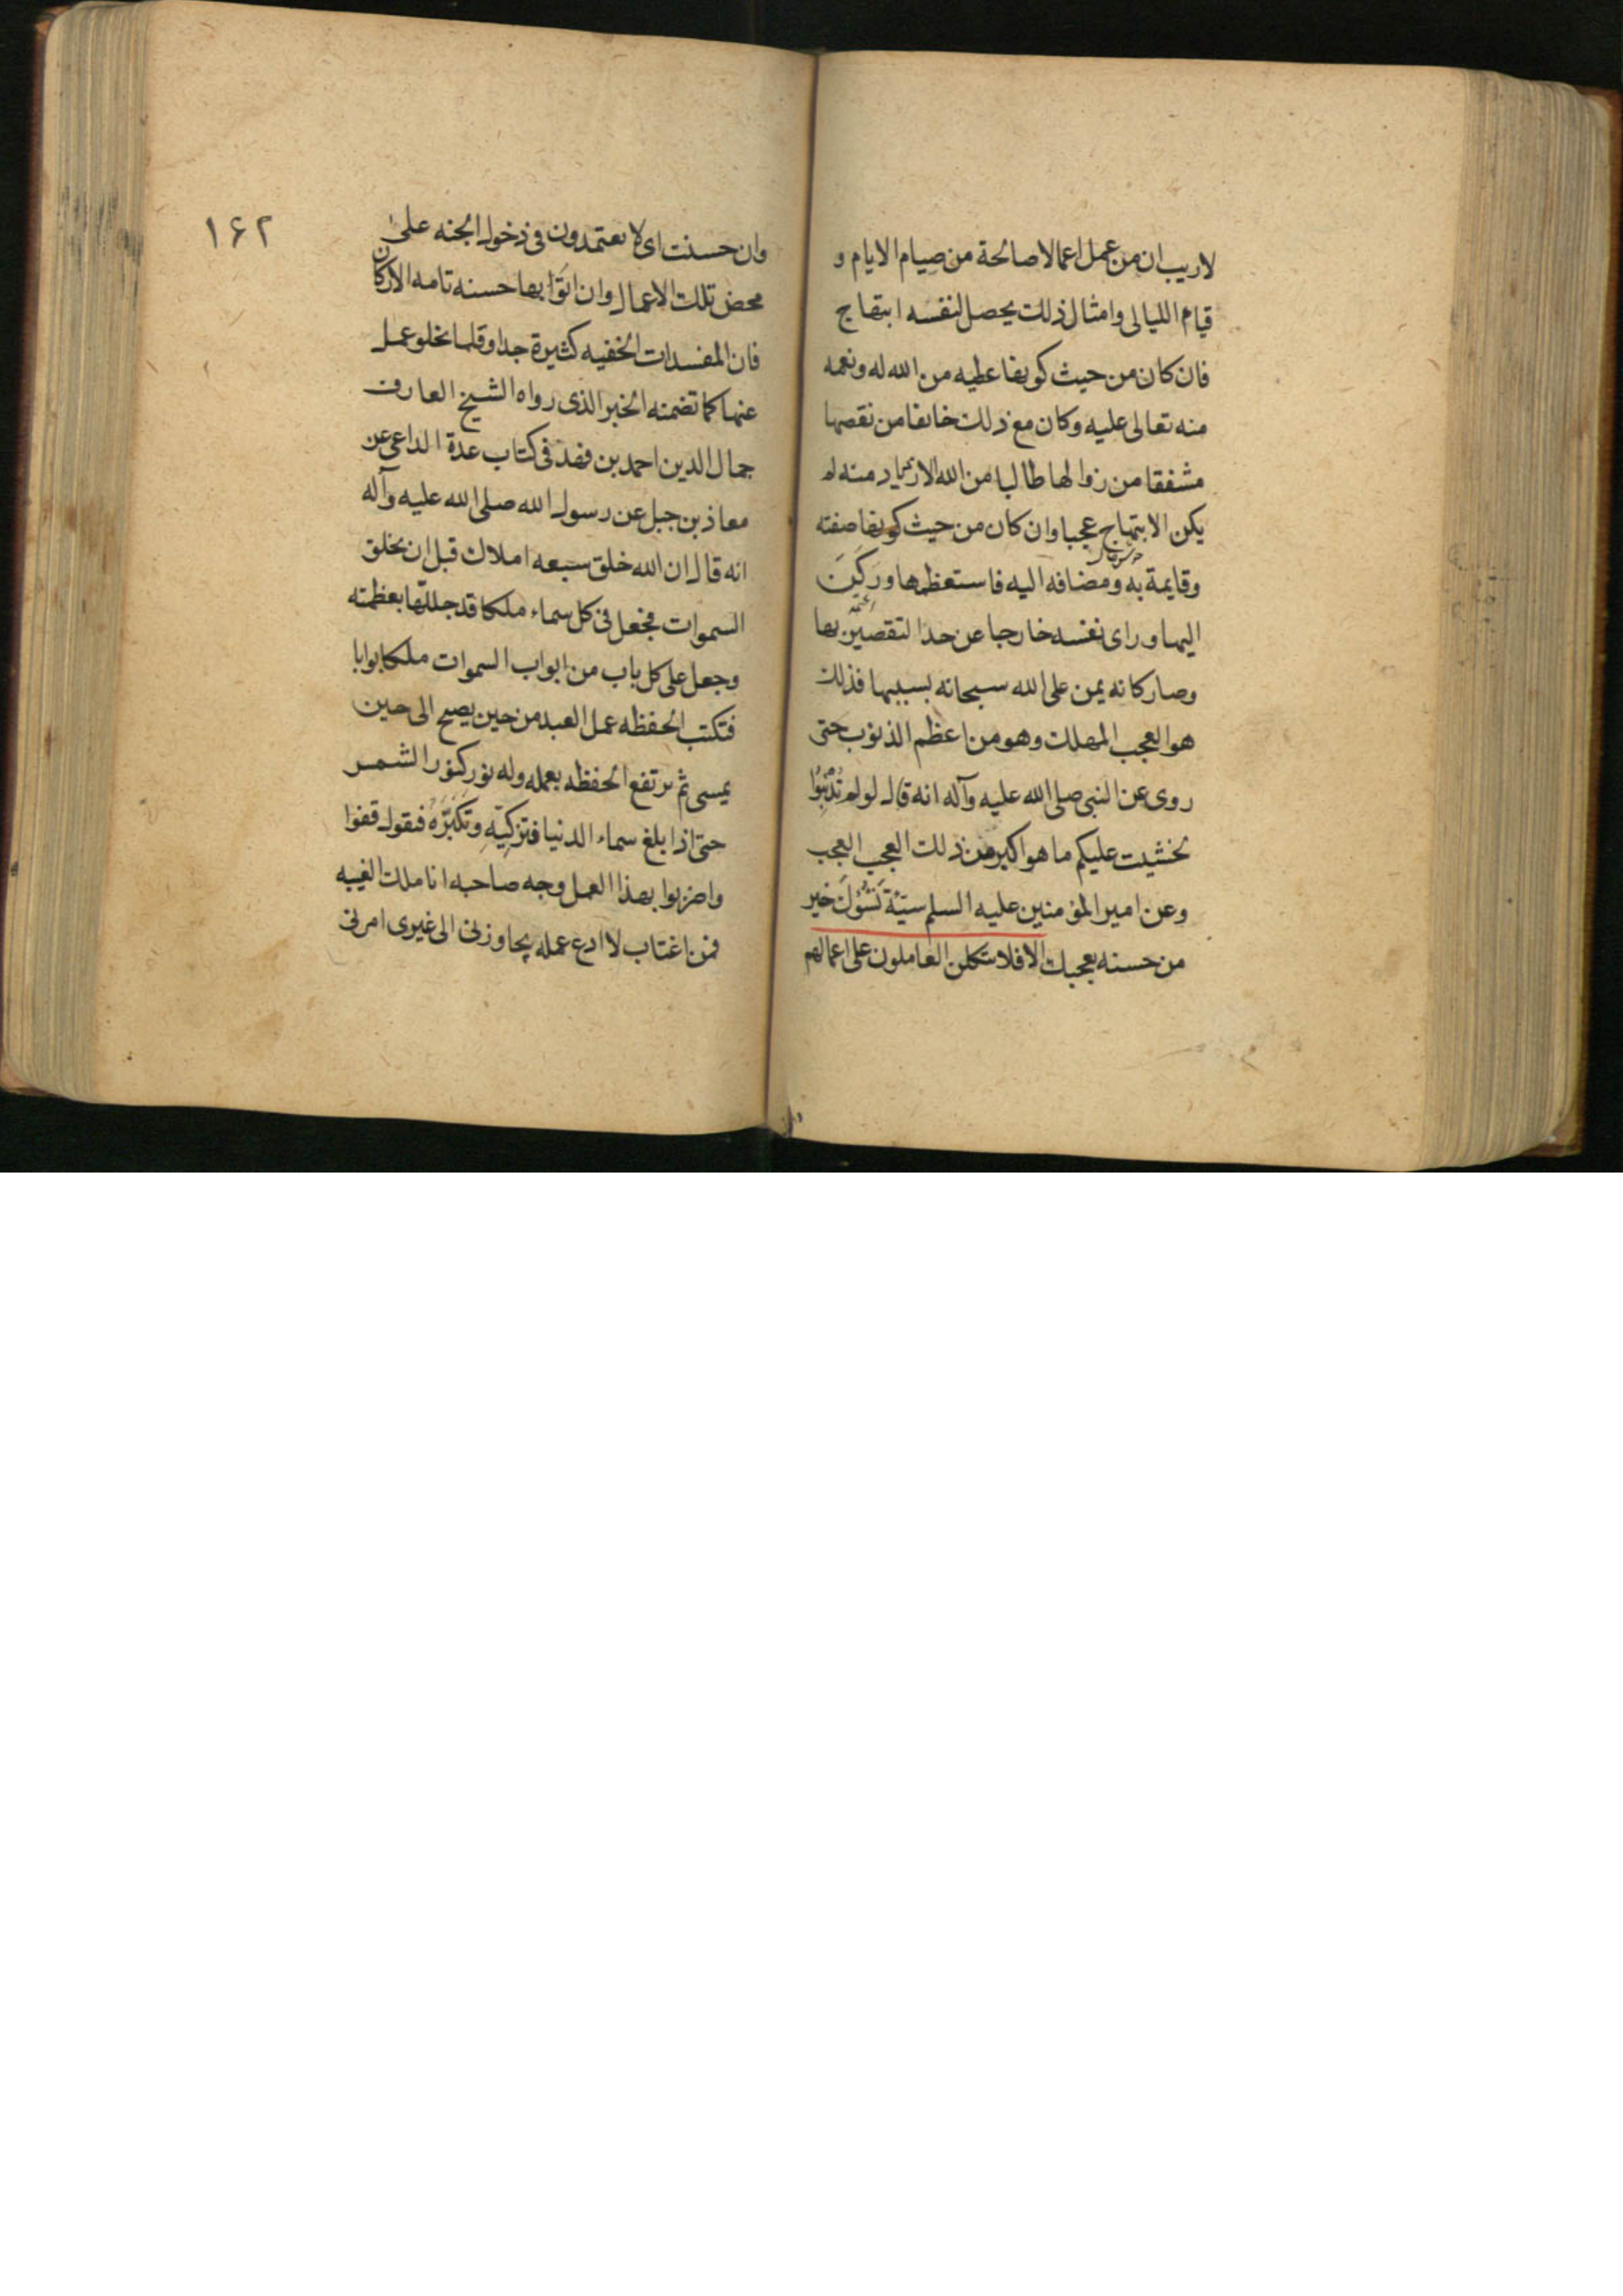 لاريب ان من عمل اعمالا صالحة من صيام الايام و
قيام الليالى وامثال ذلك يحصل لنفسه ابتهاج
فان كان من حيث كونها عطيه من الله له ونعمه
منه تعالى عليه وكان مع ذلك خائفا من نقصها
مشفقا من زوالها طالبا من الله الازدياد منها لم
يكن الابتهاج عجبا وان كان من حيث كونها صفته
وقايمة به ومضافه اليه فاستعظمها وركن
اليها وراى نفسه خارجا عن حد التقصير بها
وصار كانه يمن على الله سبحانه بسببها فذلك
هو العجب المهلك وهو من اعظم الذنوب حتى
روى عن النبى صلى الله عليه وآله انه قال لو لم تُذْنِبُوا
لخشيت عليكم ما هو اكبر من ذلك العجب العجب
وعن امير المؤمنين عليه السلم سيّئة تَسُؤُكَ خير
من حسنه تعجبك الا فلا يتكلن العاملون على اعمالهم
١۶٢
وان حسنت اى لا يعتمدون فى دخول الجنه على
محض تلك الاعمال وان اتوا بها حسنه تامه الاركان
فان المفسدات الخفيه كثيرة جدا وقلما يخلو عمل
عنها كما تضمنه الخبر الذى رواه الشيخ العارف
جمال الدين احمد بن فهد فى كتاب عدة الداعى عن
معاذ بن جبل عن رسول الله صلى الله عليه وآله
انه قال ان الله خلق سبعه املاك قبل ان يخلق
السموات فجعل فى كل سماء ملكا قد جللها بعظمته
وجعل على كل باب من ابواب السموات ملكا بوابا
فتكتب الحفظه عمل العبد من حين يصبح الى حين
يمسى ثم ترتفع الحفظه بعمله وله نور كنور الشمس
حتى اذا بلغ سماء الدنيا فتزكيّه وتكثّره فيقول قفوا
واضربوا بهذا العمل وجه صاحبه انا ملك الغيبه
فمن اغتاب لا ادع عمله يجاوزنى الى غيرى امرنى